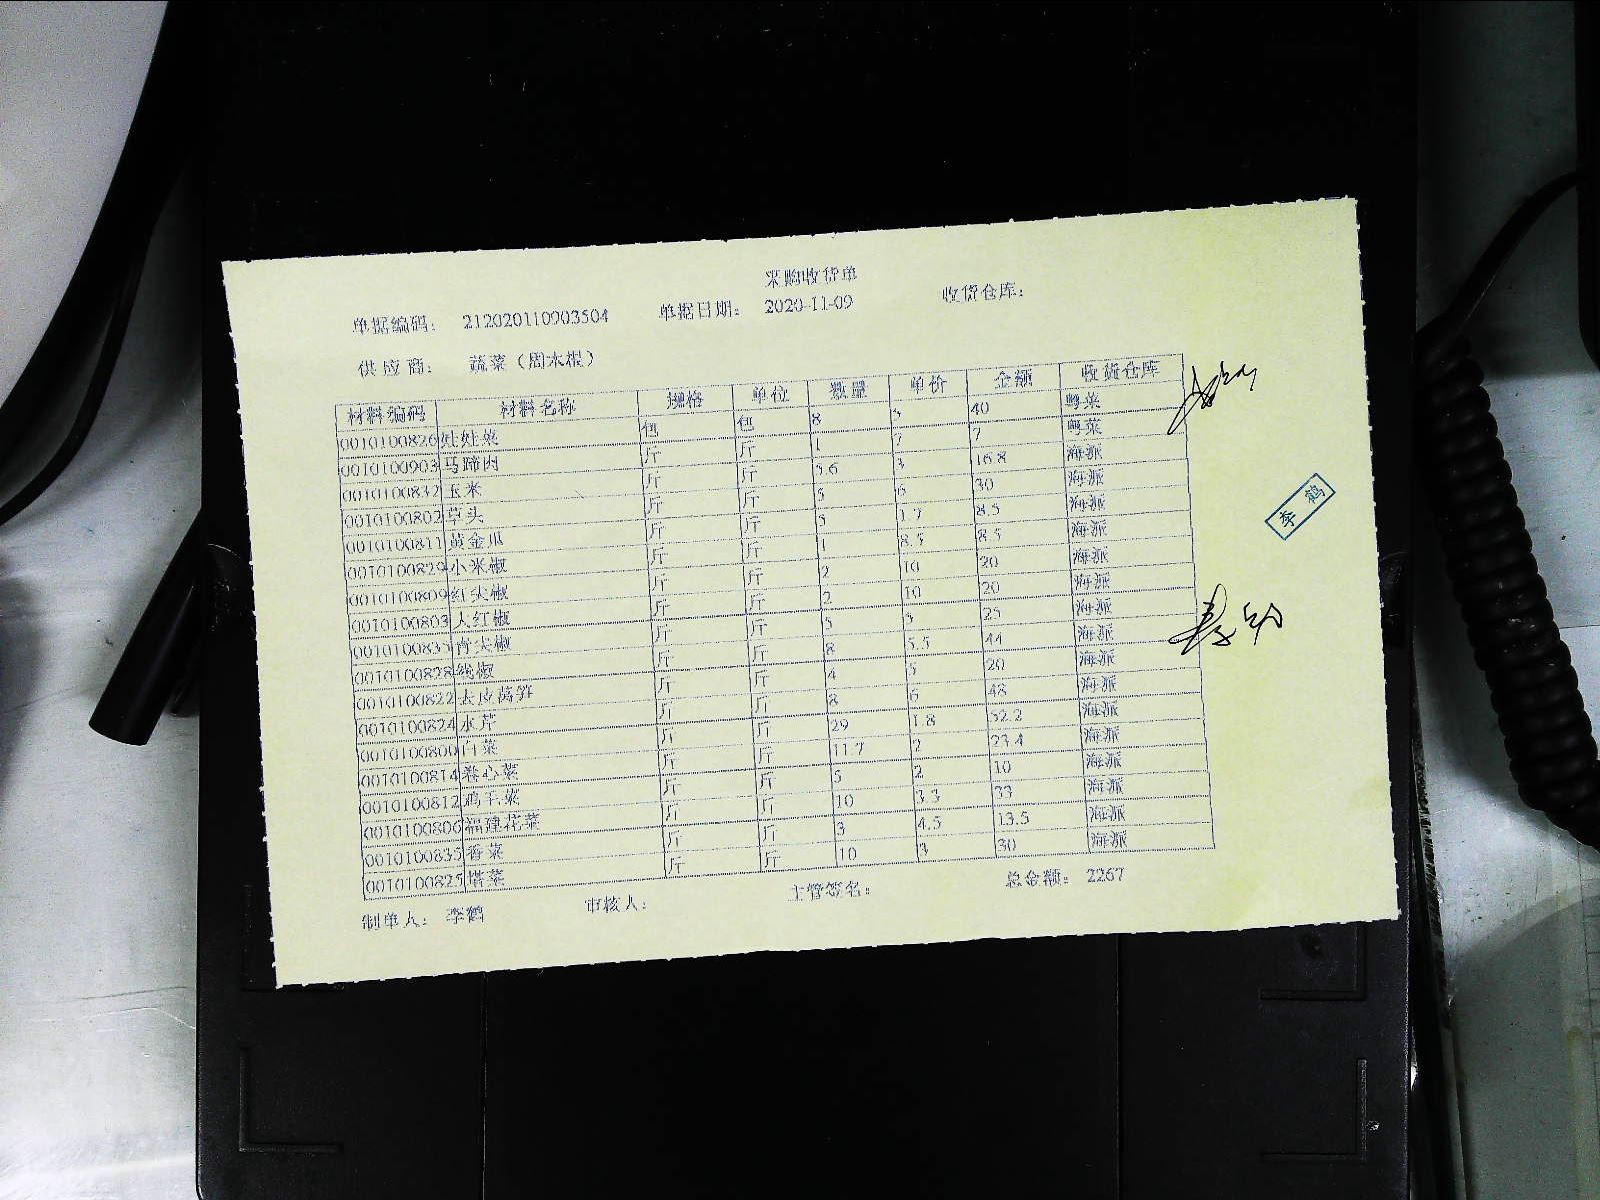 采购收货单
单据编码： 212020110903504 单据日期： 2020-11-09 收货仓库：
供应商： 蔬菜（周水根）
材料编码 材料名称 规格 单位 数量 单价 金额 收货仓库
0010100826 娃娃菜 包 包 8 5 40 粤菜
0010100903 马蹄肉 斤 斤 1 7 7 粤菜
0010100832 玉米 斤 斤 5.6 3 16.8 海派
0010100802 草头 斤 斤 5 6 30 海派
0010100811 黄金瓜 斤 斤 5 1.7 8.5 海派
0010100829 小米椒 斤 斤 1 8.5 8.5 海派
0010100809 红尖椒 斤 斤 2 10 20 海派
0010100803 大红椒 斤 斤 2 10 20 海派
0010100835 青尖椒 斤 斤 5 5 25 海派
0010100828 线椒 斤 斤 8 5.5 44 海派
0010100822 去皮莴笋 斤 斤 4 5 20 海派
0010100824 水芹 斤 斤 8 6 48 海派
0010100800 白菜 斤 斤 29 1.8 52.2 海派
0010100814 卷心菜 斤 斤 11.7 2 23.4 海派
0010100812 鸡毛菜 斤 斤 5 2 10 海派
0010100806 福建花菜 斤 斤 10 3.3 33 海派
0010100835 香菜 斤 斤 3 4.5 13.5 海派
0010100825 塔菜 斤 斤 10 3 30 海派
制单人： 李鹤 审核人： 主管签名： 总金额： 2267
李鹤